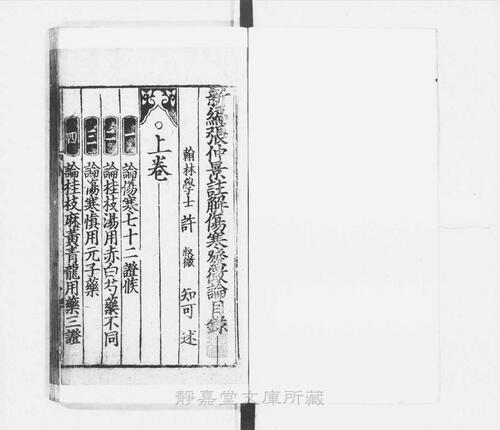 新編張仲景註解傷寒發微論目錄
翰林學士許叔微知可述
上卷
一 論傷寒七十二證候
二 論桂枝湯用赤白芍藥不同
三 論傷寒慎用元子藥
四 論桂枝麻黃青龍用藥三證
靜嘉堂文庫所藏